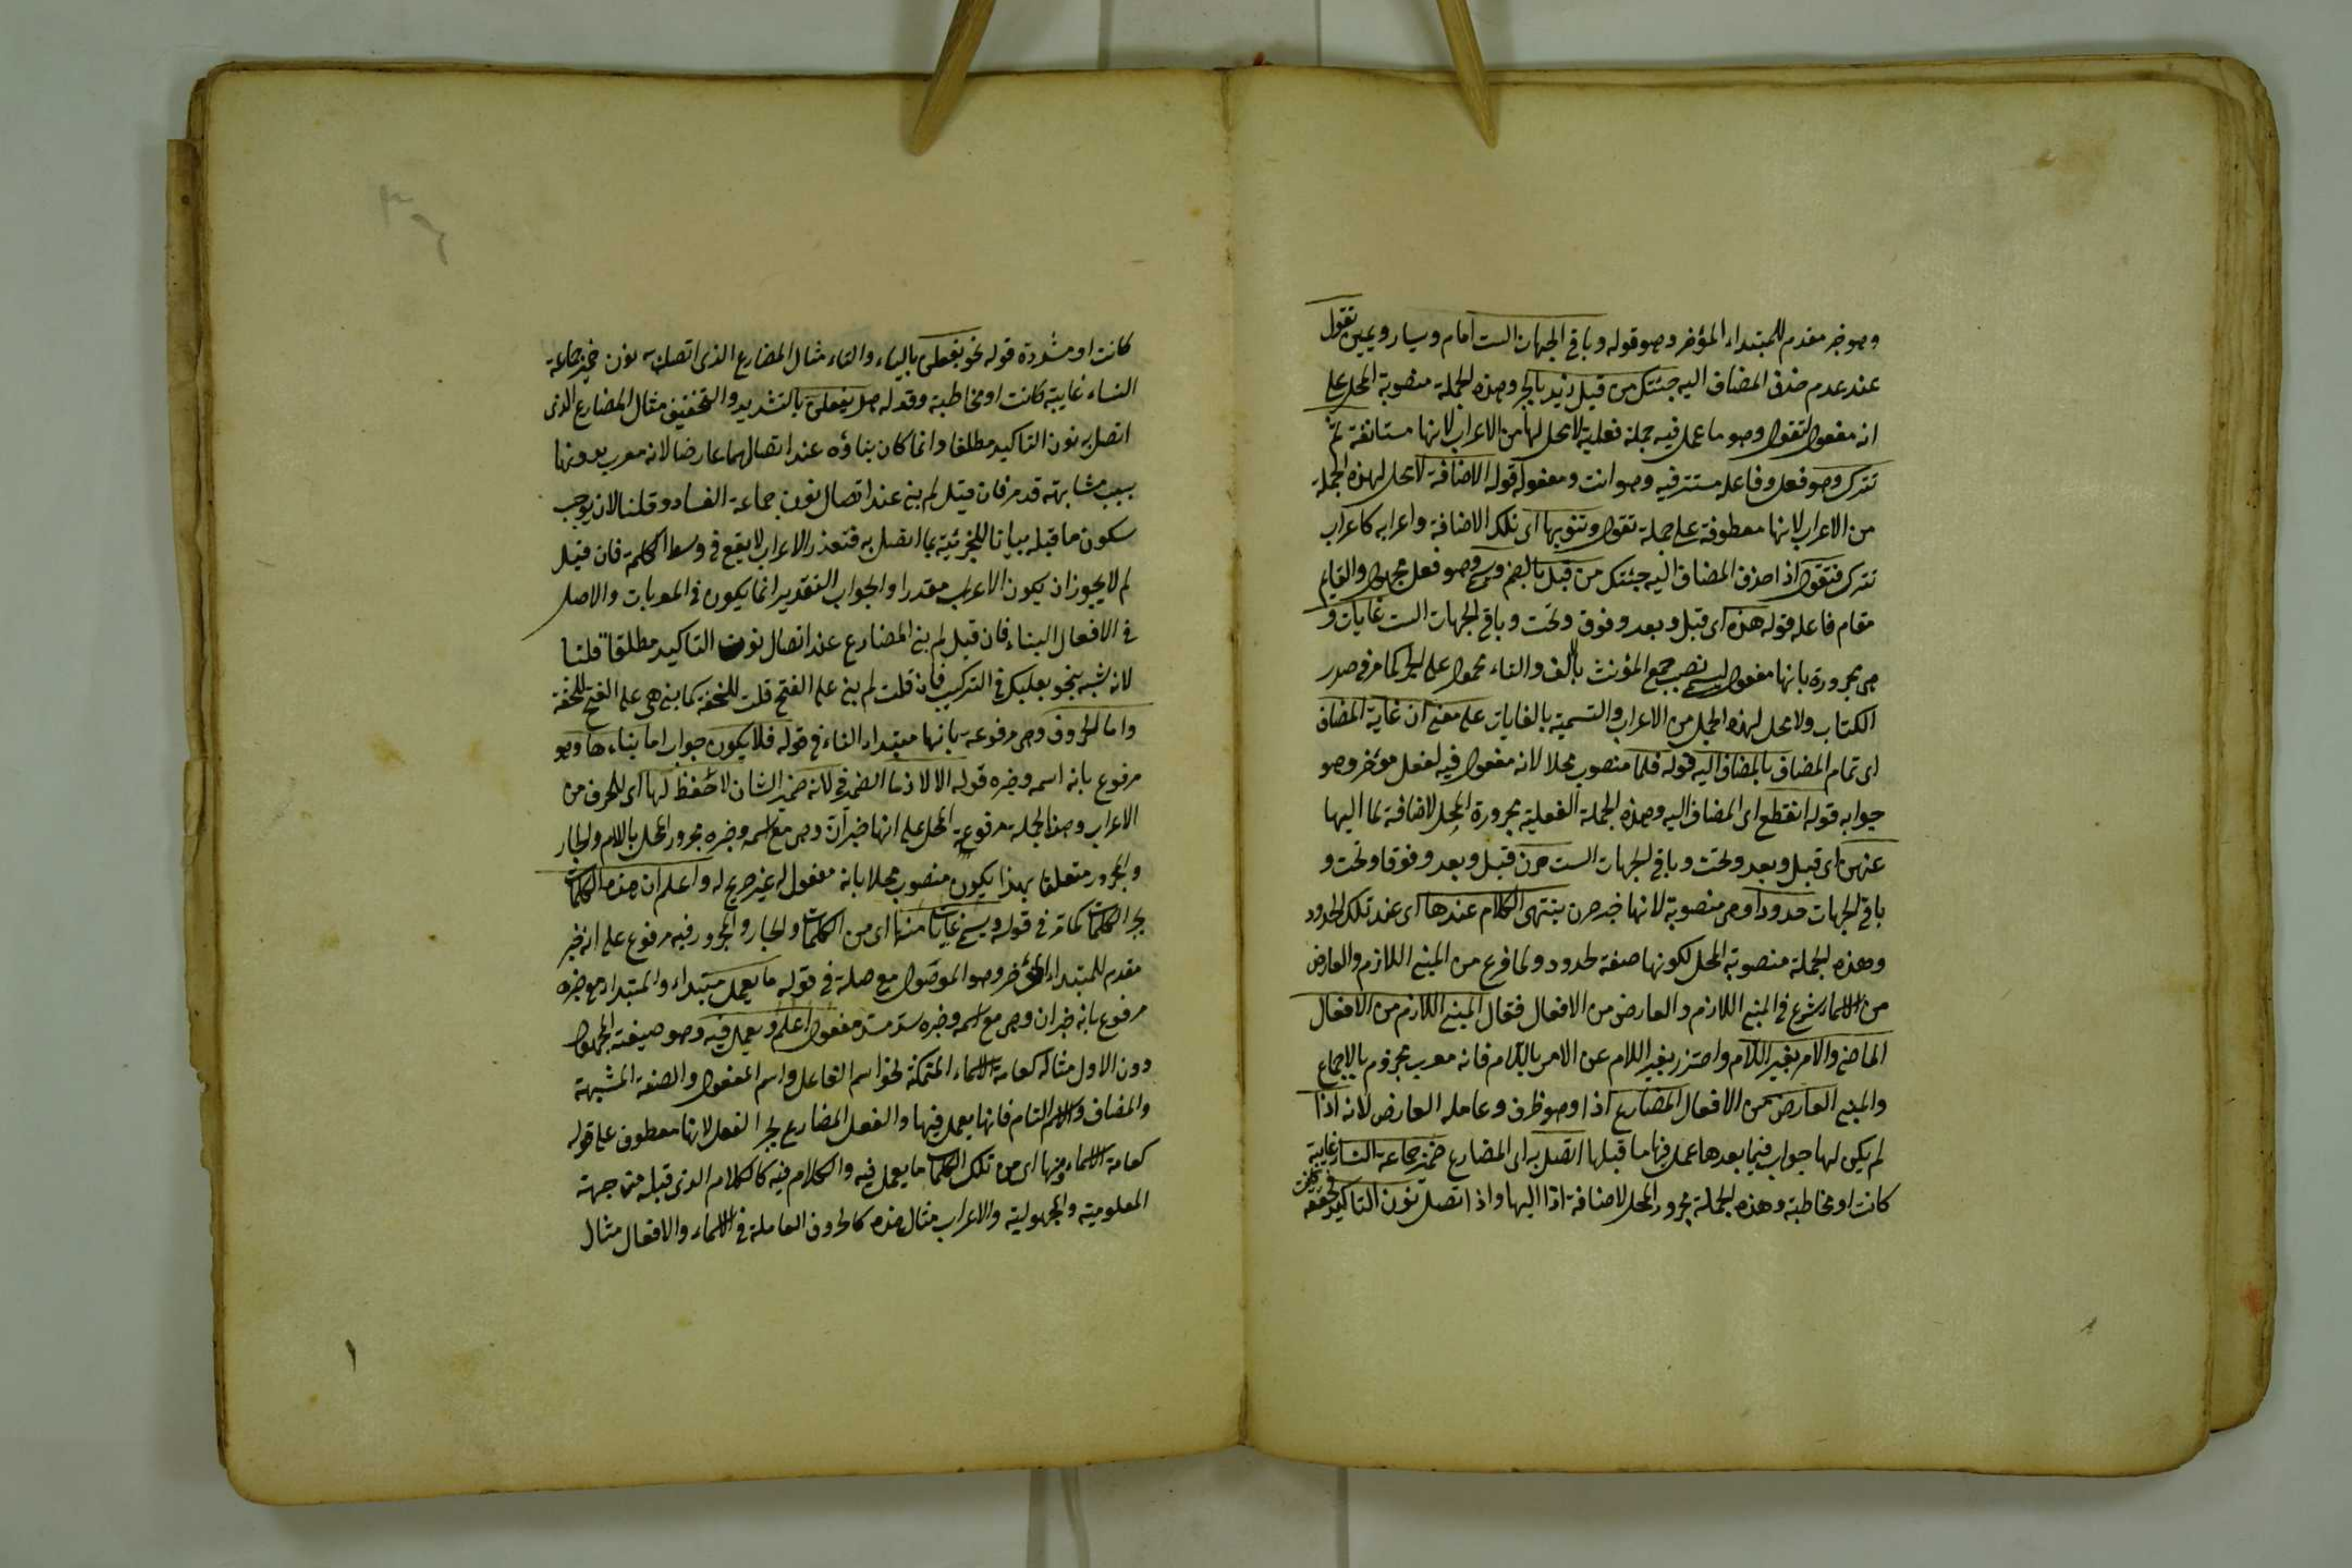 وهو خبر مقدم للمبتداء المؤخر وهو قوله وباقي الجهات الست امام ويسار ويمين تقول
عند عدم حذف المضاف اليه جئتك من قبل زيد بالجر وهذه الجملة منصوبة المحل على
انه مفعول لتقول وهو ما عمل فيه جملة فعلية لا محل لها من الاعراب لانها مستانفة ثم
تترك وهو فعل وفاعله مستتر فيه وهو انت ومفعوله قوله الاضافة لا محل لهذه الجملة
من الاعراب لانها معطوفة على جملة تقول وتنويها اى تلك الاضافة واعرابه كاعراب
تترك فتقول اذا حذف المضاف اليه جئتك من قبل بالضم وسمى وهو فعل مجهول والقايم
مقام فاعله قوله هذه اى قبل وبعد وفوق وتحت وباقي الجهات الست غايات و
هى مجرورة بانها مفعول ليسمى نصب جمع المؤنث بالف والتاء محمول على الجر كما مر فى صدر
الكتاب ولا محل لهذه الجمل من الاعراب والتسمية بالغايات على معنى ان غاية المضاف
اى تمام المضاف بالمضاف اليه قوله فلما منصوب محلا لانه مفعول فيه لفعل مؤخر وهو
جوابه قوله انقطع اى المضاف اليه وهذه الجملة الفعلية مجرورة المحل لاضافة لما اليها
عنهن اى قبل وبعد وتحت وباقي الجهات الست صرن قبل وبعد وفوقا وتحت و
باقي الجهات حدودا وهى منصوبة لانها خبر صرن ينتهى الكلام عندها اى عند تلك الحدود
وهذه الجملة منصوبة المحل لكونها صفة لحدود ولما فرغ من المبنى اللازم والعارض
من الاسماء شرع فى المبنى اللازم والعارض من الافعال فقال المبنى اللازم من الافعال
الماضى والامر بغير اللام واحترز بغير اللام عن الامر باللام فانه معرب مجزوم بالاجماع
والمبنى العارض من الافعال المضارع اذا وهو ظرف وعامله العارض لانه اذا
لم يكن لها جواب فيما بعدها عمل فيها ما قبلها اتصل به اى المضارع ضمير جماعة النساء غايبة
كانت او مخاطبة وهذه الجملة مجرور المحل لاضافة اذا اليها واذ اتصل نون التاكيد مخففة
كانت او مشددة قوله نحو يفعلن بالياء والتاء مثال المضارع الذى اتصل به نون ضمير جماعة
النساء غايبة كانت او مخاطبة وقوله هل يفعلن بالتشديد والتخفيف مثال المضارع الذى
اتصل به نون التاكيد مطلقا وانما كان بناؤه عند اتصالهما عارضا لانه معرب بدونها
بسبب مشابهته قد مر فان قيل لم بنى عند اتصال نون جماعة النساء وقلنا لان يوجب
سكون ما قبله بيانا للجزئية بما اتصل به فتعذر الاعراب لا يقع فى وسط الكلمة فان قيل
لم لا يجوز ان يكون الاعراب مقدرا والجواب التقدير انما يكون فى المعربات والاصل
فى الافعال البناء فان قيل لم بنى المضارع عند اتصال نون التاكيد مطلقا قلنا
لانه شبه بنحو بعلبك فى التركيب فان قلت لم بنى على الفتح قلت للخفة كما بنى هى على الفتح للخفة
واما الحروف وهى مرفوعة بانها مبتداء الفاء فى قوله فلا يكون جواب اما بناءها وهو
مرفوع بانه اسمه وخبره قوله الا لازما الضمير فى لانه ضمير الشان لا حفظ لها اى للحرف من
الاعراب وهذا الجملة مرفوعة المحل على انها خبر ان وهى مع اسمه وخبره مجرور المحل بالام والجار
والمجرور متعلقا بهذا يكون منصوب محلا بانه مفعول له غير صريح له واعلم ان هذه الكلمات
بجر الكلمات كما مر فى قوله ويسمى غايات منها اى من الكلمات والجار والمجرور فيه مرفوع على انه خبر
مقدم للمبتداء المؤخر وهو الموصول مع صلة فى قوله ما يعمل مبتداء والمبتداء مع خبره
مرفوع بانه خبر ان وهى مع اسمه وخبره سد مسد مفعول اعلم ويعمل فيه وهو صيغة المجهول
دون الاول مثاله كعامة الاسماء المتمكنة نحو اسم الفاعل واسم المفعول والصفة المشبهة
والمضاف والاسم التام فانها يعمل فيها والفعل المضارع بجر الفعل لانها معطوف على قوله
كعامة الاسماء ومنها اى من تلك الكلمات ما يعمل فيه والكلام فيه كالكلام الذى قبله من جهة
المعلومية والمجهولية والاعراب مثال هذه كالحروف العاملة فى الاسماء والافعال مثال